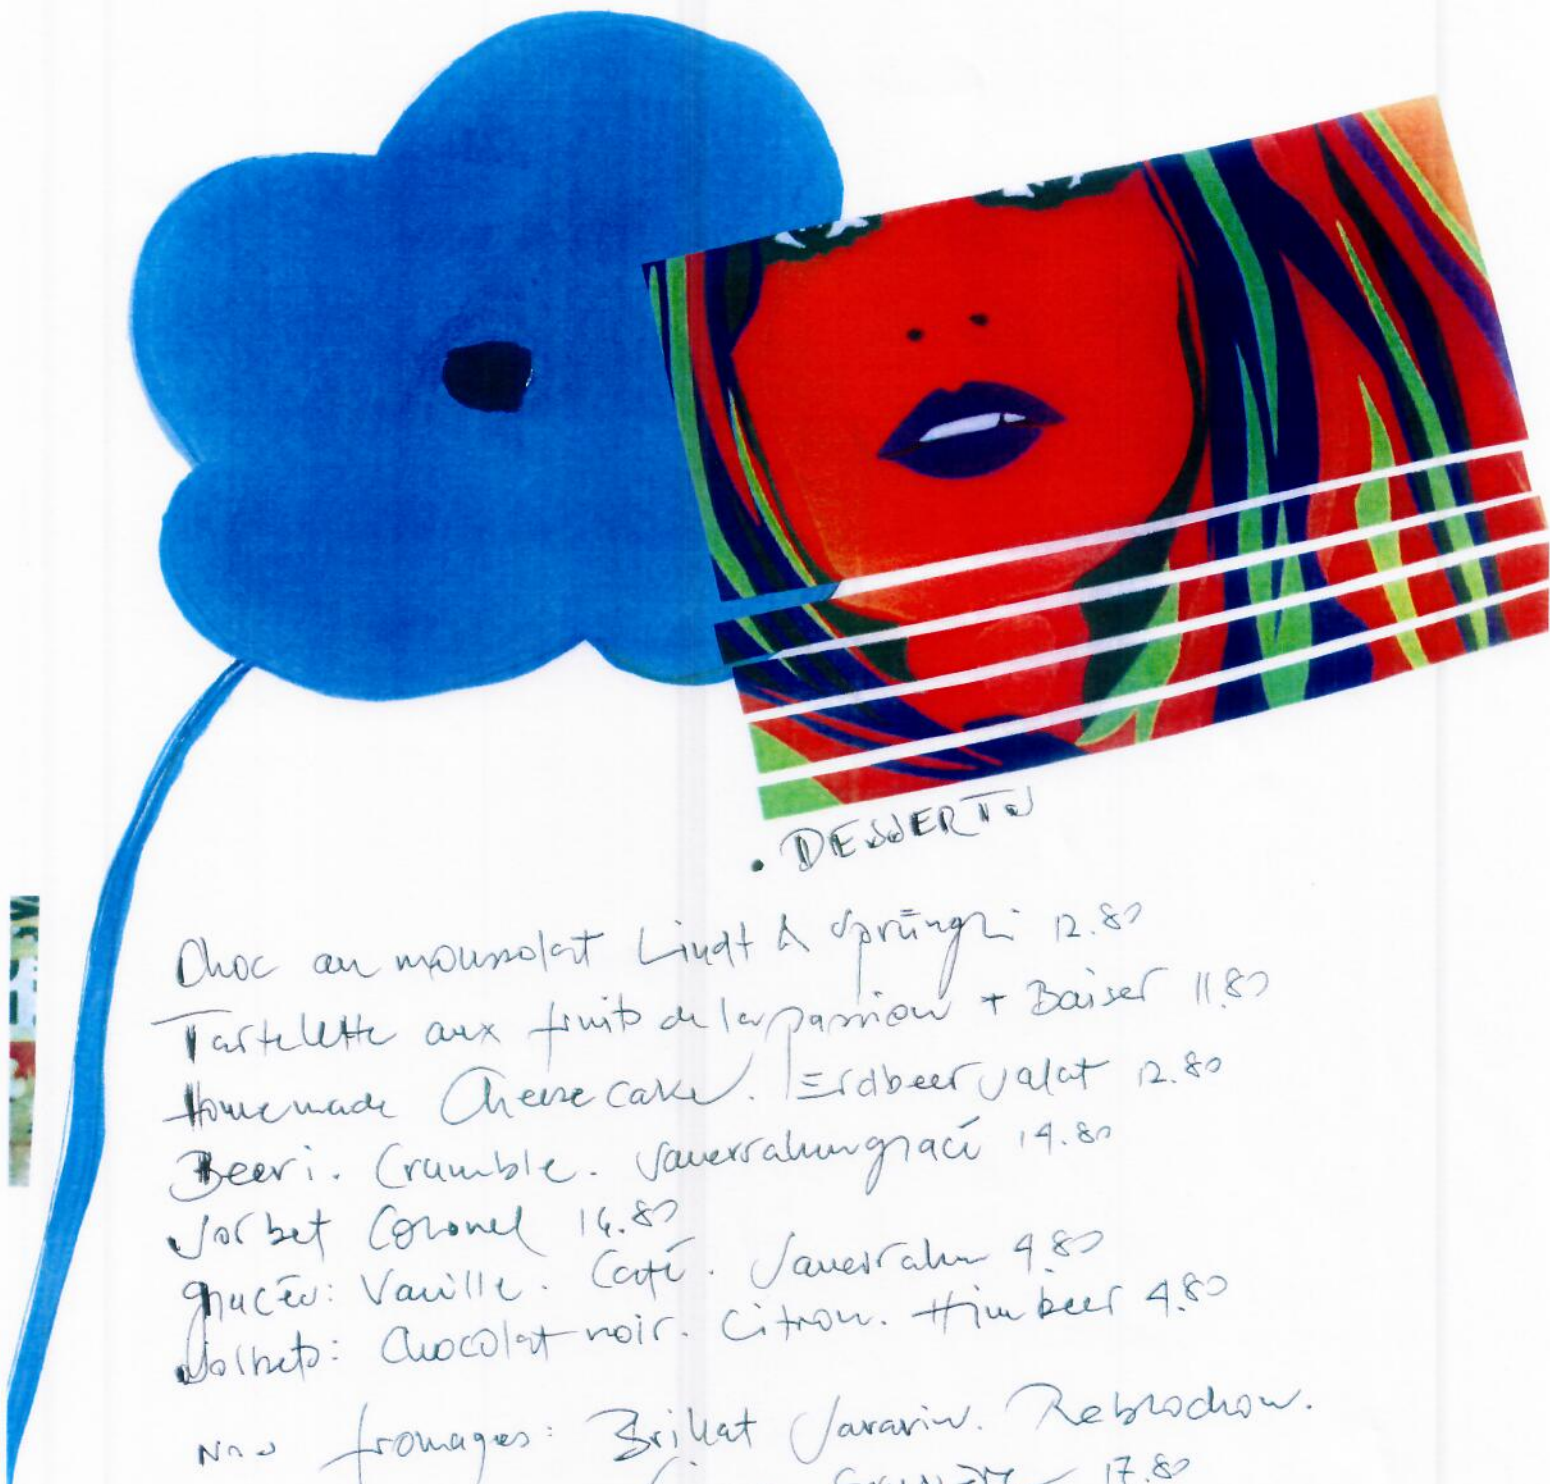 • DESSERTS
Choc au moussolat Lindt & Sprüngli 12.80
Tartelette aux fruits de la passion + Baiser 11.80
Homemade Cheesecake. Erdbeersalat 12.80
Beeri. Crumble. Sauerrahmglacé 14.80
Sorbet Colonel 16.80
Glacés: Vanille. Café. Sauerrahm 4.80
Sorbets: Chocolat noir. Citron. Himbeer 4.80
Nos fromages: Brillat Savarin. Reblochon.
17.80